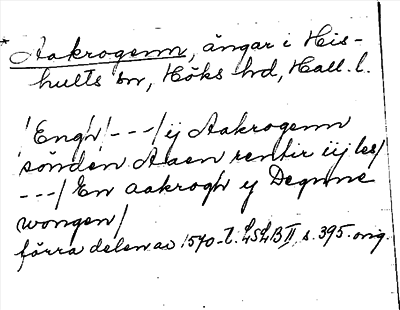 * Aakrogenn, ängar i His-
hults sn, Höks hd, Hall. l.
/Engh/---/ ij Aakrogenn
sönden Aaen rentir iij les/
---/ En aakrogh y Degnne
wongen/
förra delen av 1570-t. LSLB II, s. 395. orig.